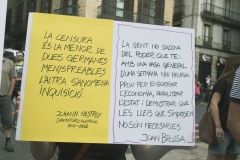 LA CENSURA
ÉS LA MENOR DE
DUES GERMANES
MENYSPREABLES
L'ALTRA S'ANOMENA
INQUISICIÓ
JOHANN NESTROY
1801-1862
LA GENT NO S'ADONA
DEL PODER QUE TÉ:
AMB UNA VAGA GENERAL
D'UNA SETMANA N'HI HAURIA
PROU PER ENSORRAR
L'ECONOMIA, PARALITZAR
L'ESTAT I DEMOSTRAR QUE
LES LLEIS QUE S'IMPOSEN
NO SÓN NECESSÀRIES
JOAN BROSSA